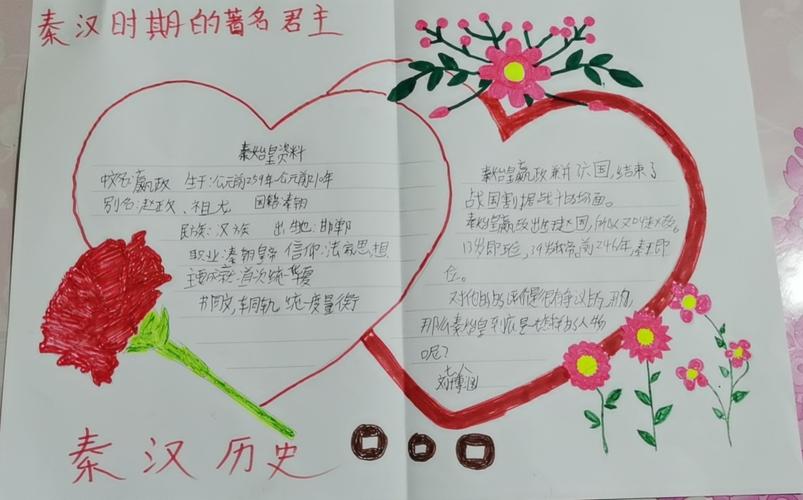 秦汉时期的著名君主
秦始皇资料
姓名:嬴政 生于:公元前259年-公元前210年
别名:赵政、祖龙 国籍:秦朝
民族:汉族 出生地:邯郸
职业:秦朝皇帝 信仰:法家思想
主要成就:首次统一华夏
书同文,车同轨,统一度量衡
秦始皇嬴政兼并六国,结束了
战国割据战斗的场面。
秦始皇嬴政出生赵国,所以又叫赵政。
13岁即位,
前246年,秦王即
位。
对他的评价是很有争议的,
那么秦始皇到底是怎样的人物
呢?
秦汉历史